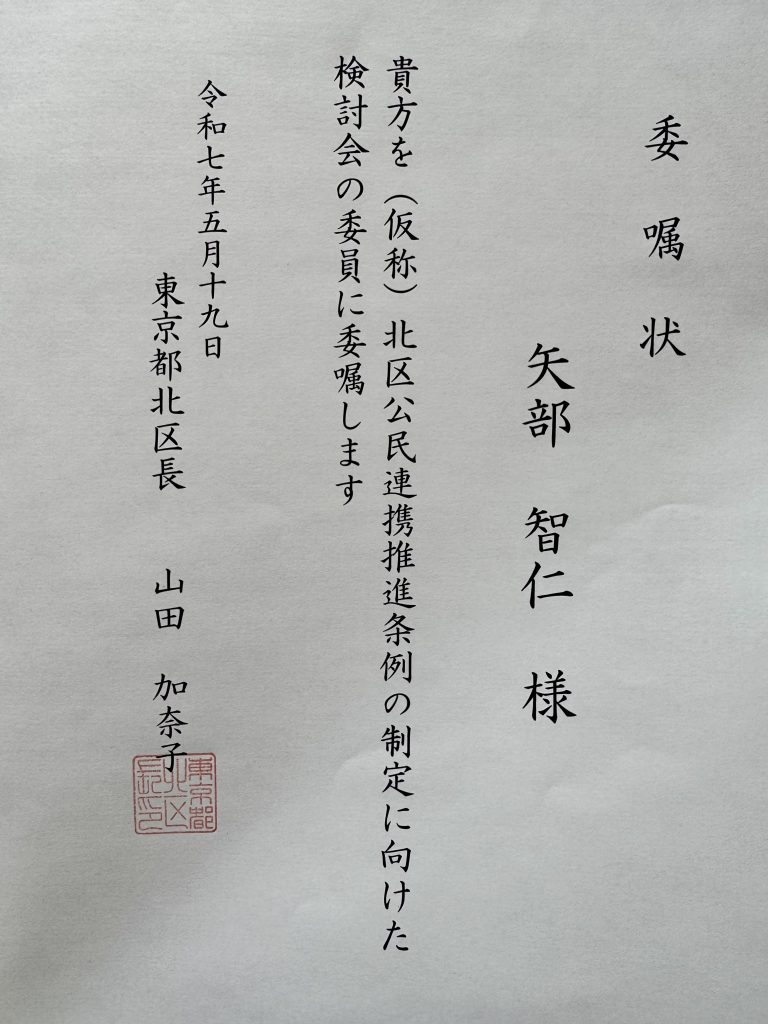 委嘱状
矢部 智仁 様
貴方を（仮称）北区公民連携推進条例の制定に向けた
検討会の委員に委嘱します
令和七年五月十九日
東京都北区長 山田 加奈子
東京都
北区
長印